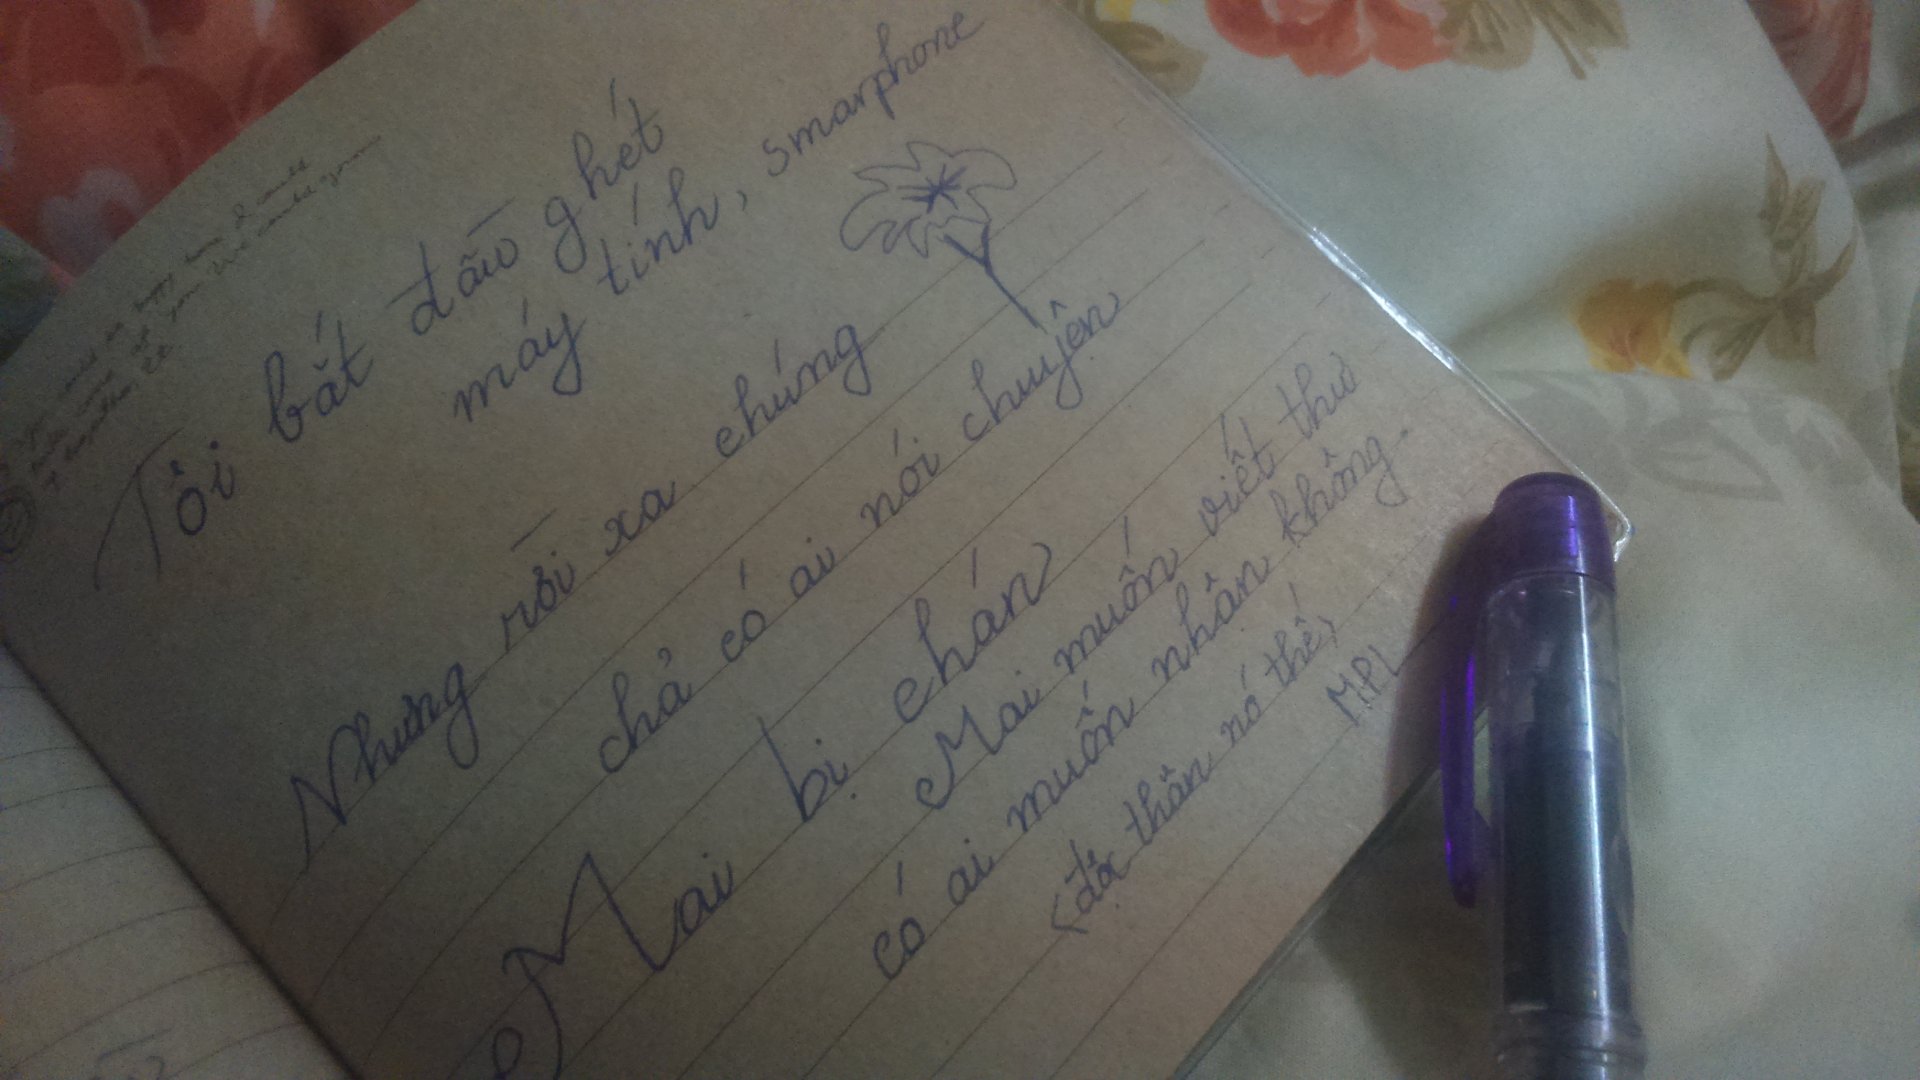 Tôi bắt đầu ghét
máy tính, smarphone
Nhưng rồi xa chúng
chả có ai nói chuyện
Mai bị chán
Mai muốn viết thư
có ai muốn nhận không.
thân nó thế)
MPL